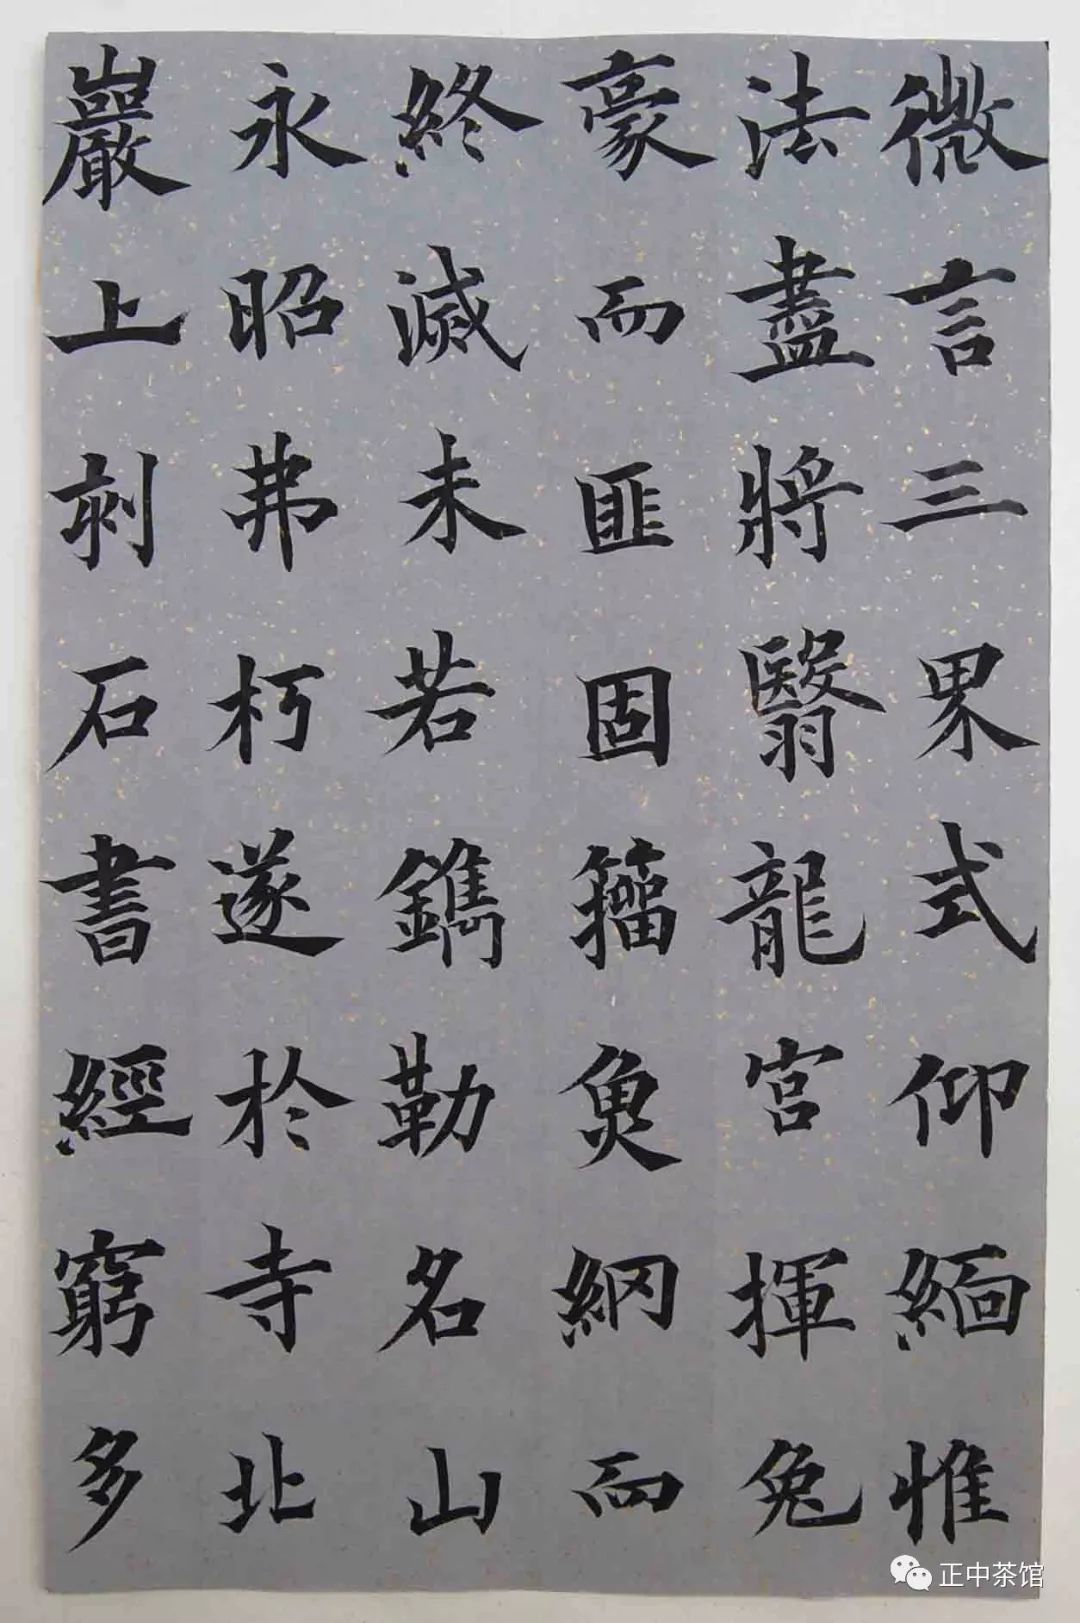 微言三界式仰緬惟
法盡將翳龍宮揮兔
豪而匪固籀魚網而
終滅未若鐫勒名山
永昭弗朽遂於寺北
巖上刻石書經窮多
正中茶馆